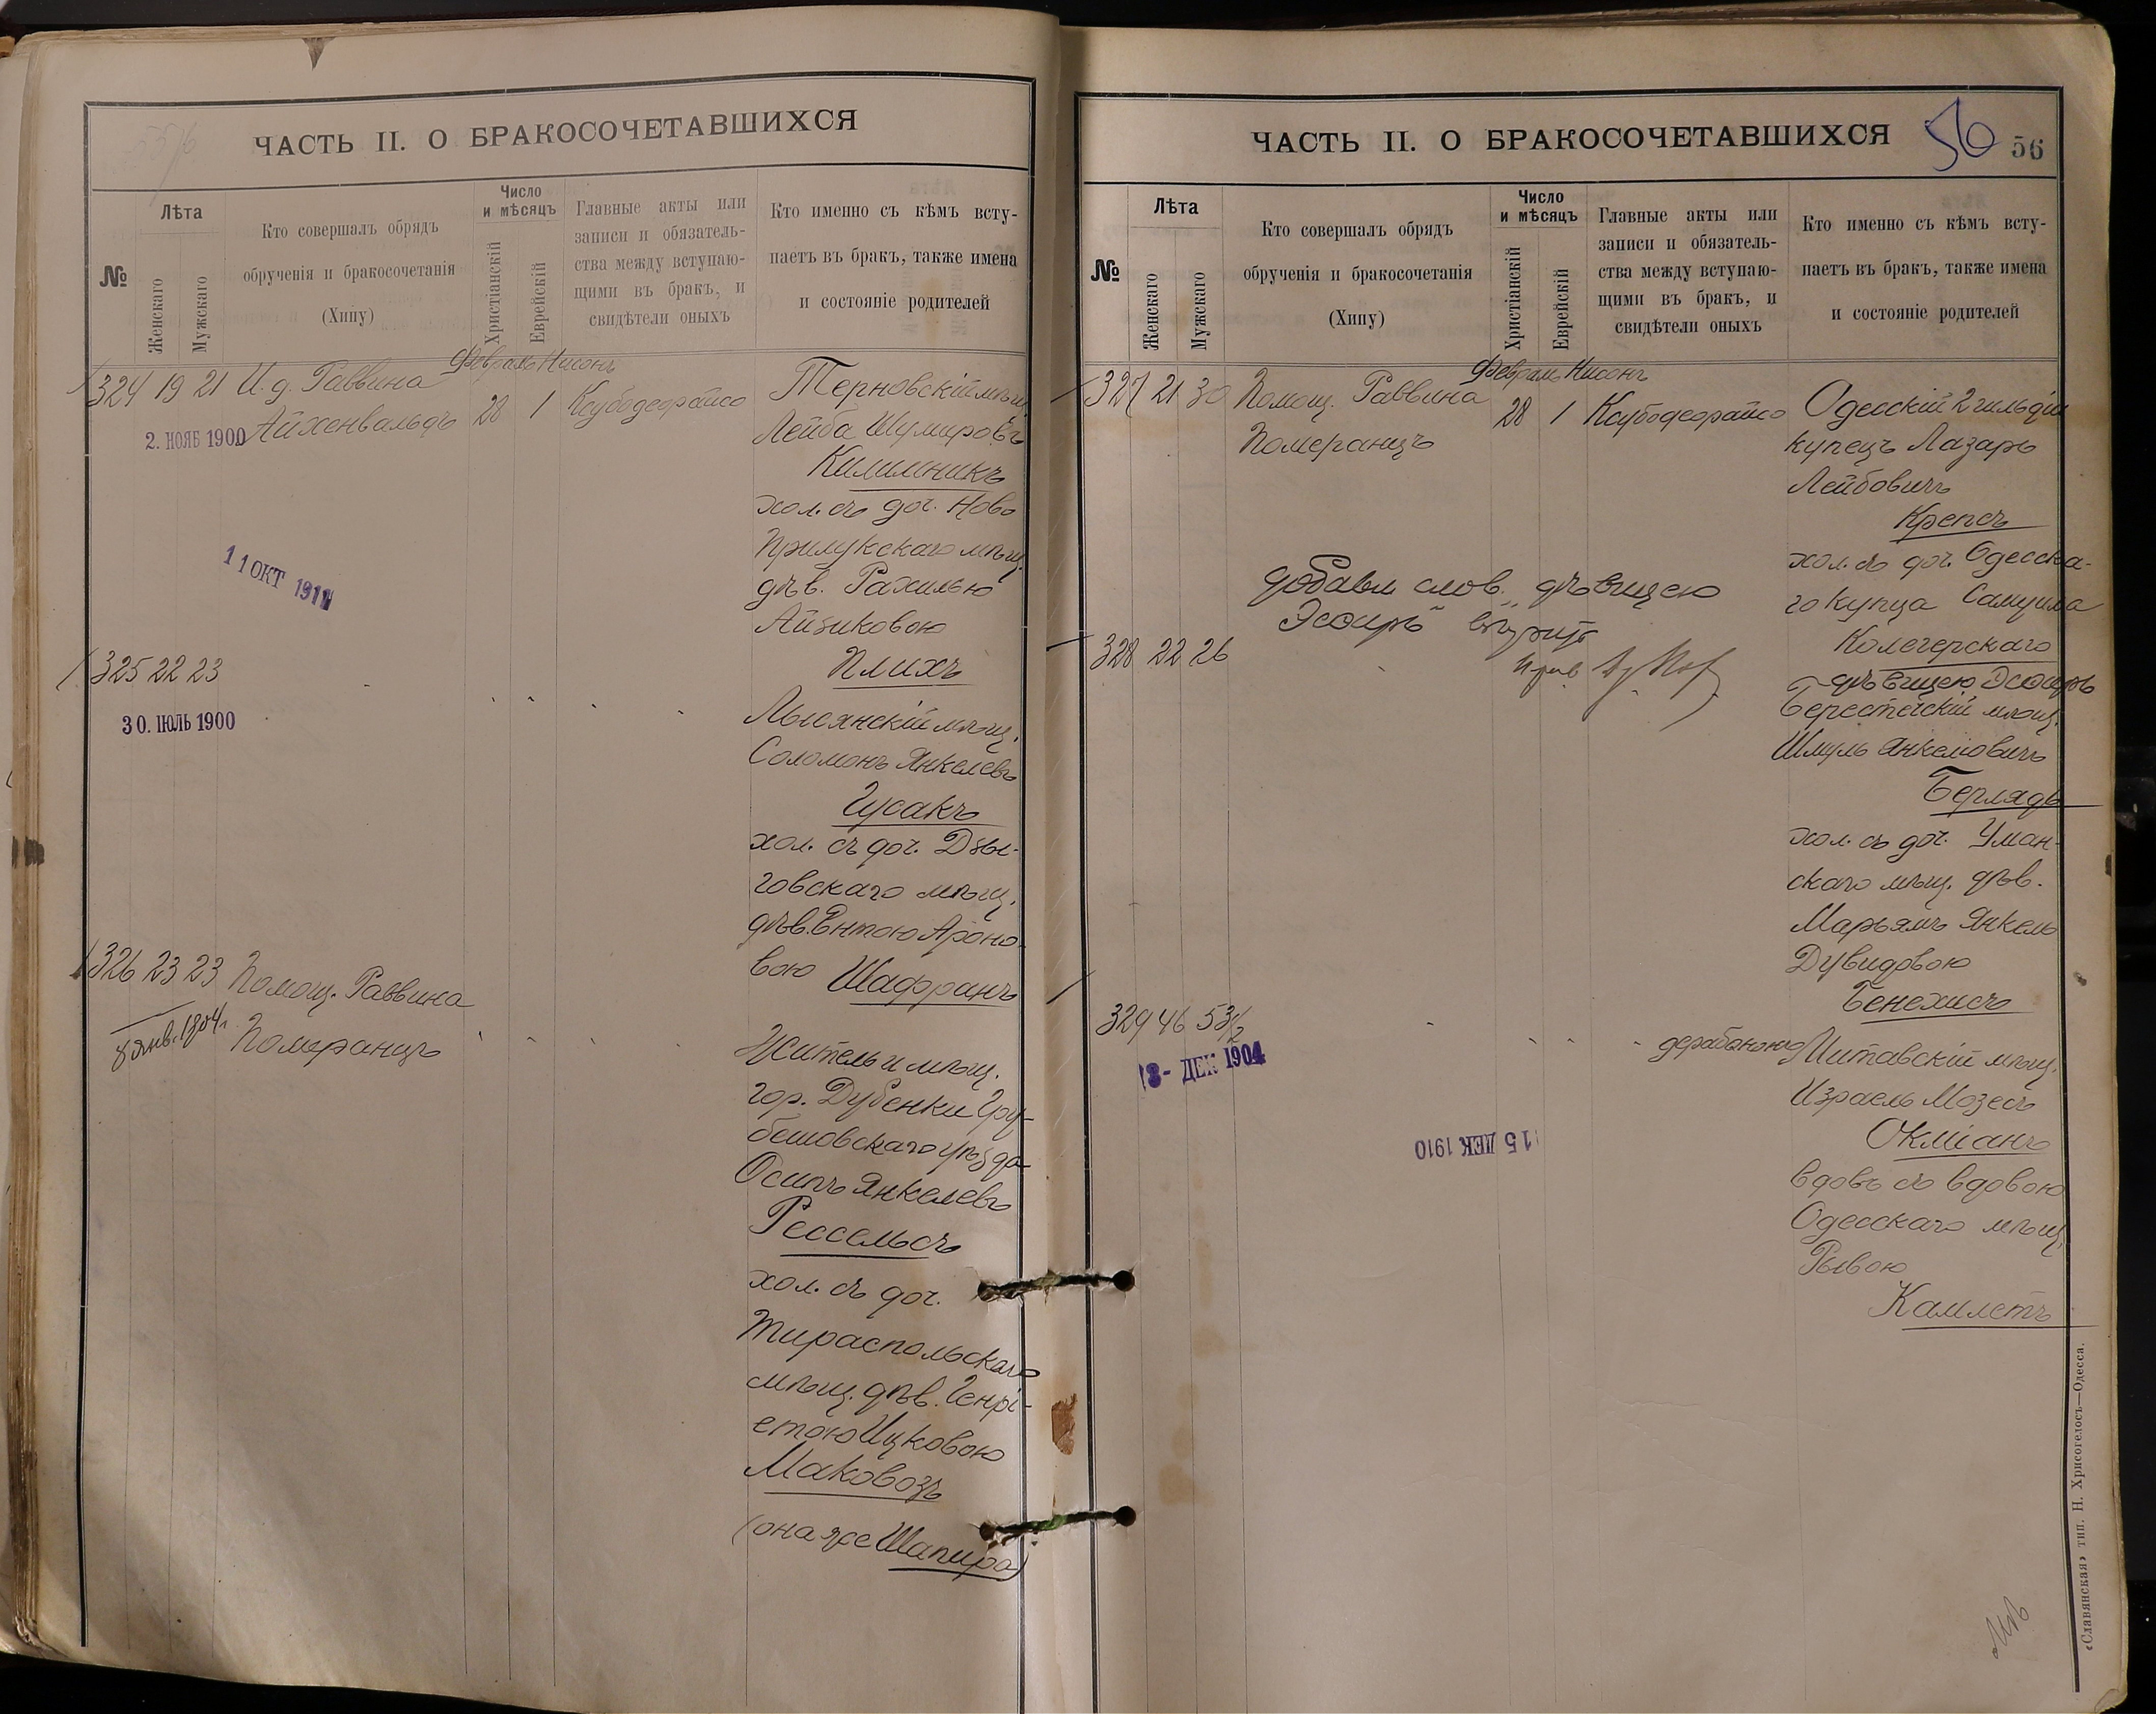 ЧАСТЬ II. О БРАКОСОЧЕТАВШИХСЯ
№
Лѣта
Женскаго
Мужскаго
Кто совершалъ обрядъ
обрученія и бракосочетанія
(Хипу)
Число
и мѣсяцъ
Христіанскій
Еврейскій
Главные акты или
записи и обязатель-
ства между вступаю-
щими въ бракъ, и
свидѣтели оныхъ
Кто именно съ кѣмъ всту-
паетъ въ бракъ, также имена
и состояніе родителей
Февраль Нисонъ
324 19 21 И. д. Раввина
Айхенвальдъ 28 1 Ксубодеорайсо
2. НОЯБ 1900
11 ОКТ 1911
Терновскій мѣщ.
Лейба Шумировъ
Килимникъ
хол. съ доч. Ново
Прилукскаго мѣщ.
дѣв. Рахилью
Айзиковою
Плихъ
325 22 23
30. ІЮЛЬ 1900
Лысянскій мѣщ.
Соломонъ Янкелевъ
Гусакъ
хол. съ доч. Дзы-
говскаго мѣщ.
дѣв. Ентою Ароно-
вою Шафранъ
326 23 23 Помощ. Раввина
Померанцъ
8 Янв. 1904 г.
Житель и мѣщ.
гор. Дубенки Гру-
бешовскаго уѣзда
Осипъ Янкелевъ
Рессельсъ
хол. съ доч.
Тираспольскаго
мѣщ. дѣв. Генрі-
етою Ицковою
Маковозъ
(она же Шапира)
ЧАСТЬ II. О БРАКОСОЧЕТАВШИХСЯ
56
56
№
Лѣта
Женскаго
Мужскаго
Кто совершалъ обрядъ
обрученія и бракосочетанія
(Хипу)
Число
и мѣсяцъ
Христіанскій
Еврейскій
Главные акты или
записи и обязатель-
ства между вступаю-
щими въ бракъ, и
свидѣтели оныхъ
Кто именно съ кѣмъ всту-
паетъ въ бракъ, также имена
и состояніе родителей
Февраль Нисонъ
327 21 30 Помощ. Раввина
Померанцъ 28 1 Ксубодеорайсо
Одесскій 2 гильдіи
купецъ Лазарь
Лейбовичъ
Крепсъ
хол. съ доч. Одесска-
го купца Самуила
Колегерскаго
дѣвицею Эсѳирь
добавл. слов. "дѣвицею
Эсѳирь"
328 22 26
Берестечскій мѣщ.
Шмуль Янкелевичъ
Берлядъ
хол. съ доч. Уман-
скаго мѣщ. дѣв.
Марьямъ Янкель
Дувидовою
Бенехисъ
329 46 53½
8- ДЕК 1904
15 ДЕК 1910
дерабононъ
Митавскій мѣщ.
Израель Мозесъ
Окміанъ
вдовъ съ вдовою
Одесскаго мѣщ.
Рывою
Камлетъ
«Славянская» тип. Н. Хрисогелосъ—Одесса.